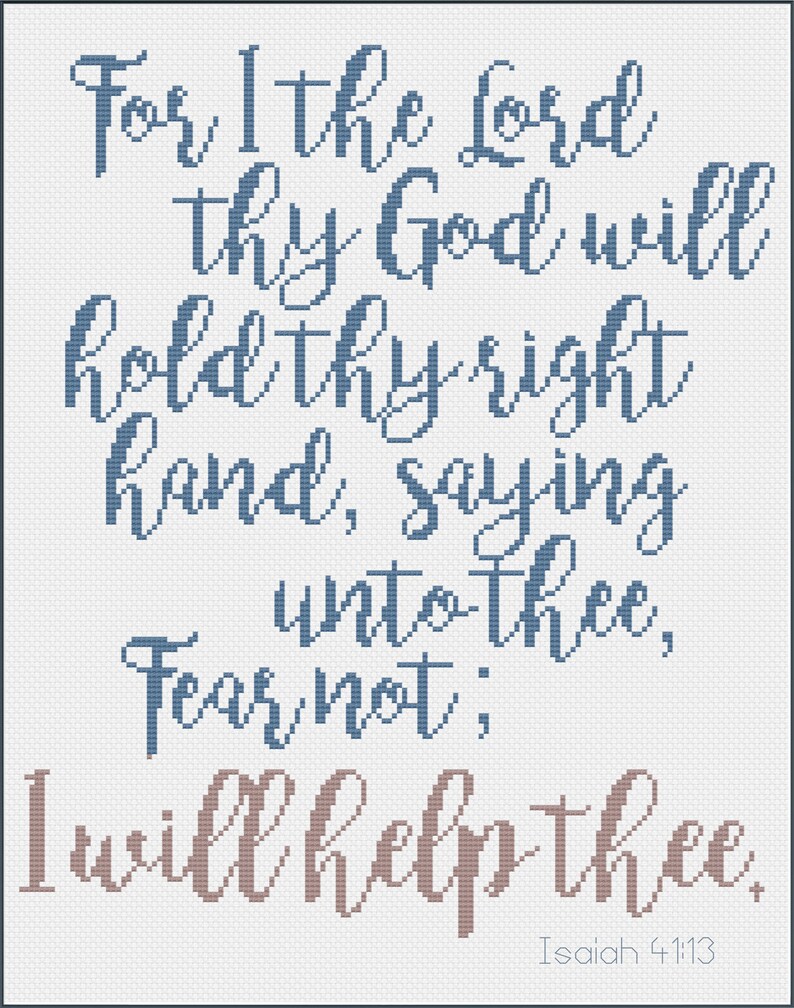 For I the Lord
thy God will
hold thy right
hand, saying
unto thee,
Fear not;
I will help thee.
Isaiah 41:13